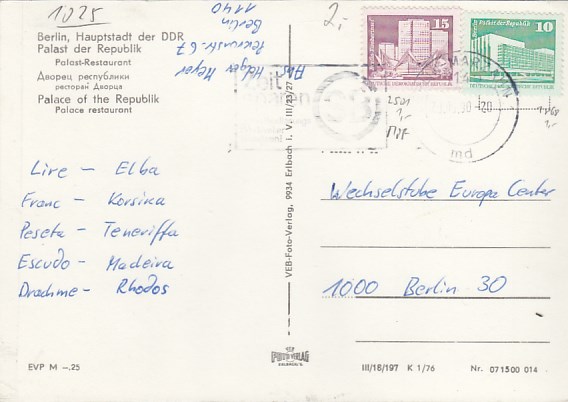 1025
Berlin, Hauptstadt der DDR
Palast der Republik
Palast-Restaurant
Дворец республики
ресторан Дворца
Palace of the Republik
Palace restaurant
Abs. Holger Meyer
Berlin
1140
2,-
15
10
Palast der Republik
2501
1,-
1,-
md
Lire – Elba
Franc – Korsika
Peseta – Teneriffa
Escudo – Madeira
Drachme – Rhodos
VEB-Foto-Verlag, 9934 Erlbach i. V. III/23/27
Wechselstube Europa Center
1000 Berlin 30
EVP M –.25
III/18/197 K 1/76
Nr. 071500 014